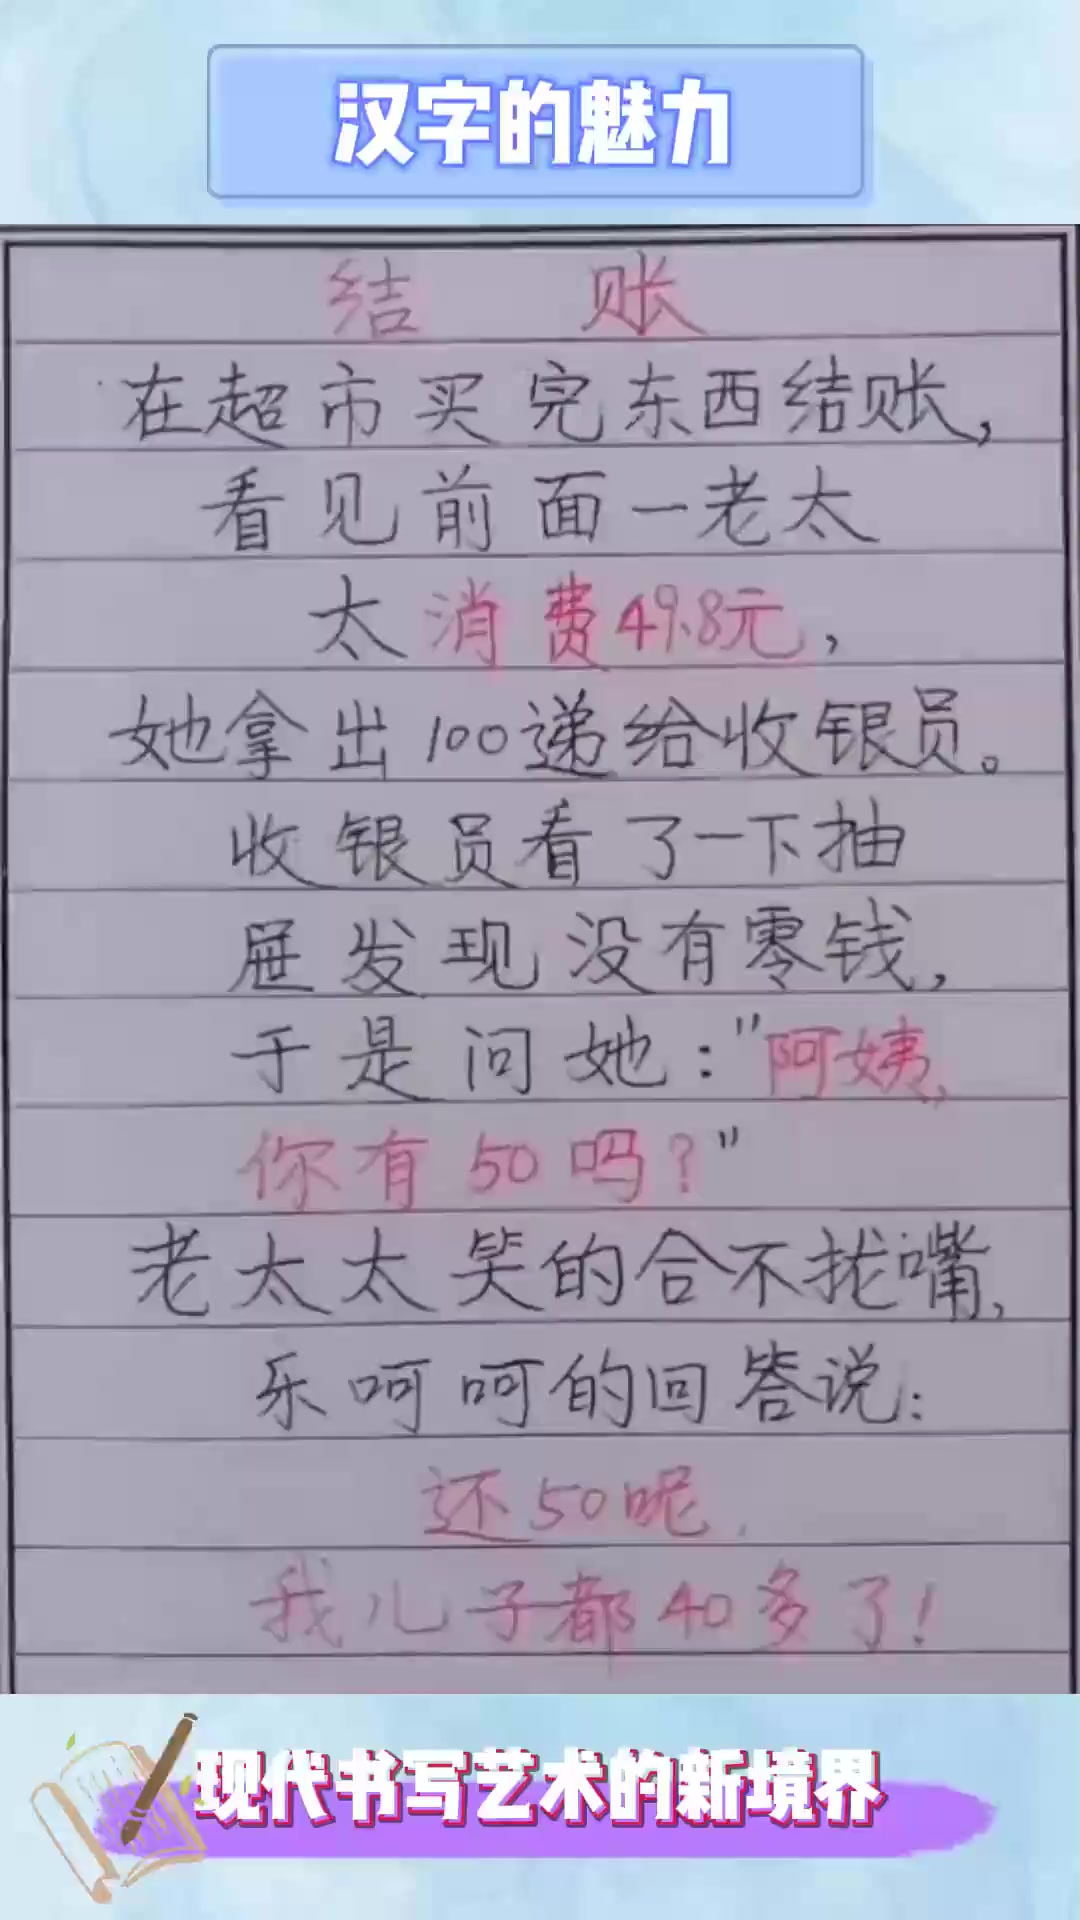 汉字的魅力
结 账
在超市买完东西结账,
看见前面一老太
太消费49.8元,
她拿出100递给收银员。
收银员看了一下抽
屉发现没有零钱,
于是问她:"阿姨,
你有50吗?"
老太太笑的合不拢嘴,
乐呵呵的回答说:
还50呢,
我儿子都40多了!
现代书写艺术的新境界